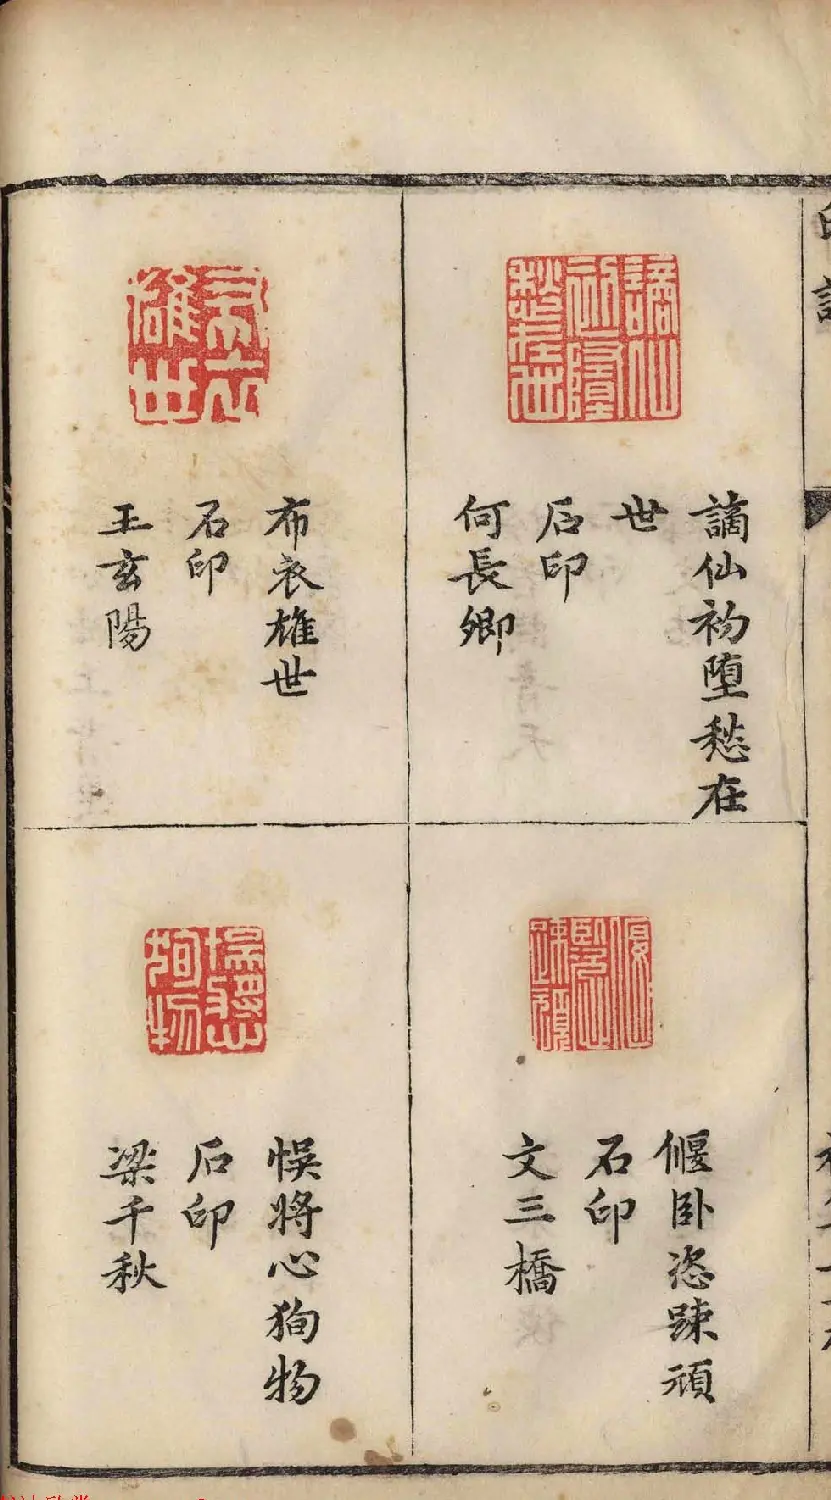 謫仙初墮愁在
世
石印
何長卿
偃卧恣踈頑
石印
文三橋
布衣雄世
石印
王玄陽
悞將心狥物
石印
梁千秋